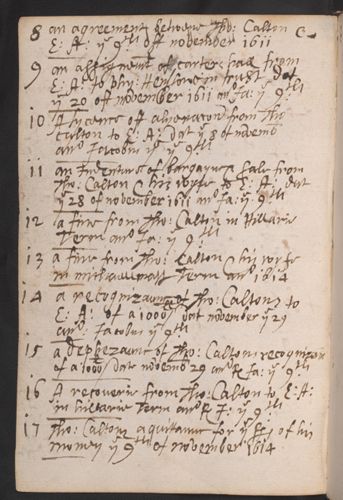 8 an agreement betwene Tho: Calton &
E: A: yͤ 9ᵗʰ off november 1611
9 an assignment of from
E: A: to Phy: Henslow in trust dat
yͤ 20 off november 1611 anᵒ Ja: yͤ 9:ᵗʰ
10 A lycence off alyenacon from Tho
Calton to E: A: dat yͤ 8 of novemb
anᵒ Jacobi yͤ yͤ 9ᵗʰ
11 an Indenture of bargayne & sale from
Tho: Calton & his wyfe to E: A: dat
yͤ 28 of november 1611 anᵒ Ja: yͤ 9:ᵗʰ
12 a fine from Tho: Calton in Hillarie
Term anᵒ Ja: yͤ 9:ᵗʰ
13 a fine from Tho: Calton & his wyfe
in michaellmas Term anᵒ 1614
14 a recognizance of Tho: Caltons to
E: A: of a 1000ˡ dat november yͤ 29
anᵒ: Jacobi yͤ 9ᵗʰ
15 a dephezance of Tho: Caltons recognizanc
of a 1000ˡ dat novemb 29 anᵒ R Ja: yͤ 9:ᵗʰ
16 A recoverie from Tho: Calton to E: A:
in hillarie term anᵒ R J: yͤ 9:ᵗʰ
17 Tho: Caltons aquitance for yͤ of his
money yͤ 9ᵗʰ of november 1614